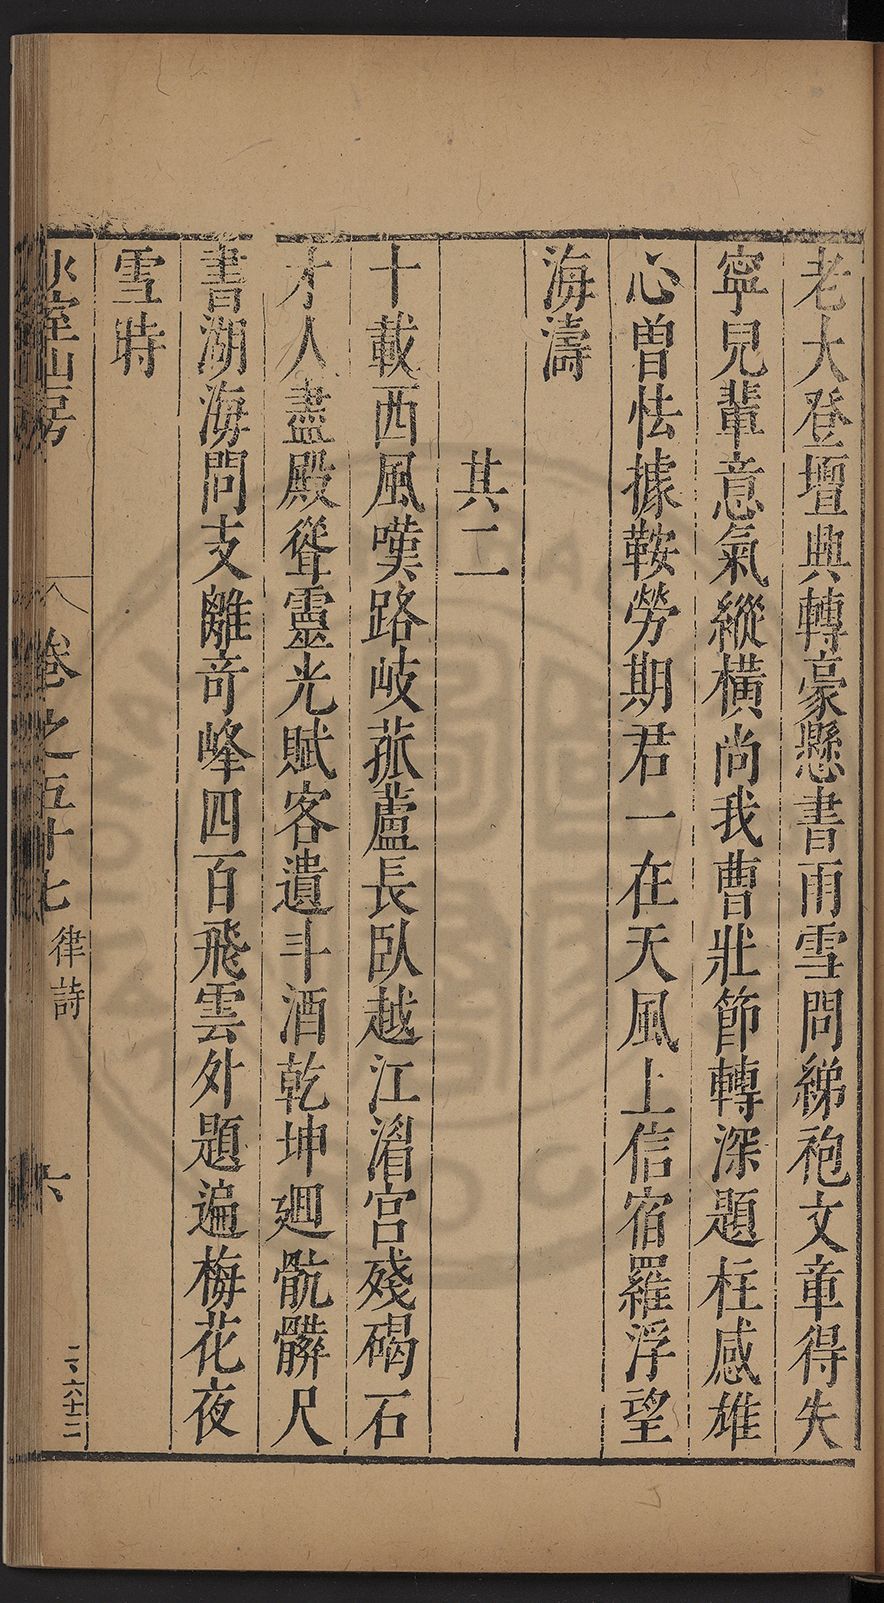 老大登壇興轉豪懸書雨雪問綈袍文章得失
寧兒輩意氣縱橫尚我曹壯節轉深題柱感雄
心曾怯據鞍勞期君一在天風上信宿羅浮望
海濤
其二
十載西風嘆路岐菰蘆長臥越江湄宮殘碣石
才人盡殿聳靈光賦客遺斗酒乾坤廻骯髒尺
書湖海問支離奇峰四百飛雲外題遍梅花夜
雪時
少室山房 卷之五十七 律詩 六 二、六十二